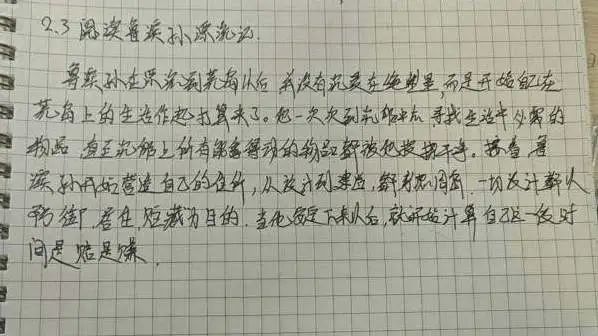 2.3 阅读鲁滨孙漂流记.
鲁滨孙在漂流到荒岛以后 并没有沉浸在绝望里,而是开始自己在
荒岛上的生活作起打算来了。他一次次到沉船中 寻找生活中必需的
物品 直至沉船上所有能拿得动的物品都被他搬 接着 鲁
滨孙开始营造自己的住所,从设计到建造,都考虑周 一切设计都从
防御、居住、贮藏为目的. 当他安定下来以后,就开始计算自己这一段时
间是赔是赚.